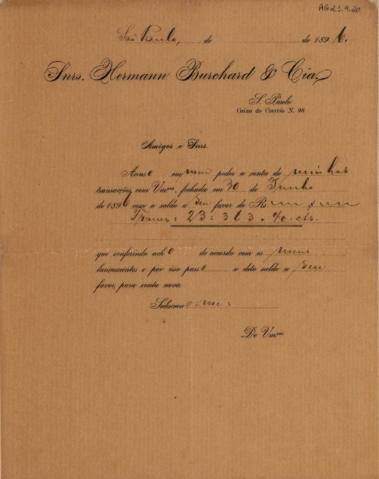 AG23.4.20
São Paulo, de de 1896.
Snrs. Hermann Burchard & Cia,
S. Paulo
Caixa do Correio N. 96
Amigos e Snrs.
Accuso em meu poder a conta de minhas
transacções com Vmces, fechada em 30 de Junho
de 1896 com o saldo a seu favor de R
23:363
que conferindo acho de accordo com os meus
lançamentos e por isso passo o dito saldo a seu
favor, para conta nova.
De Vmces